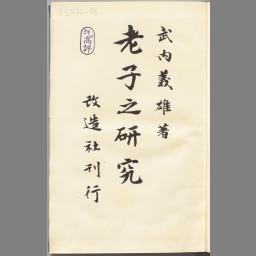 武内義雄著
老子之研究
改造社刊行